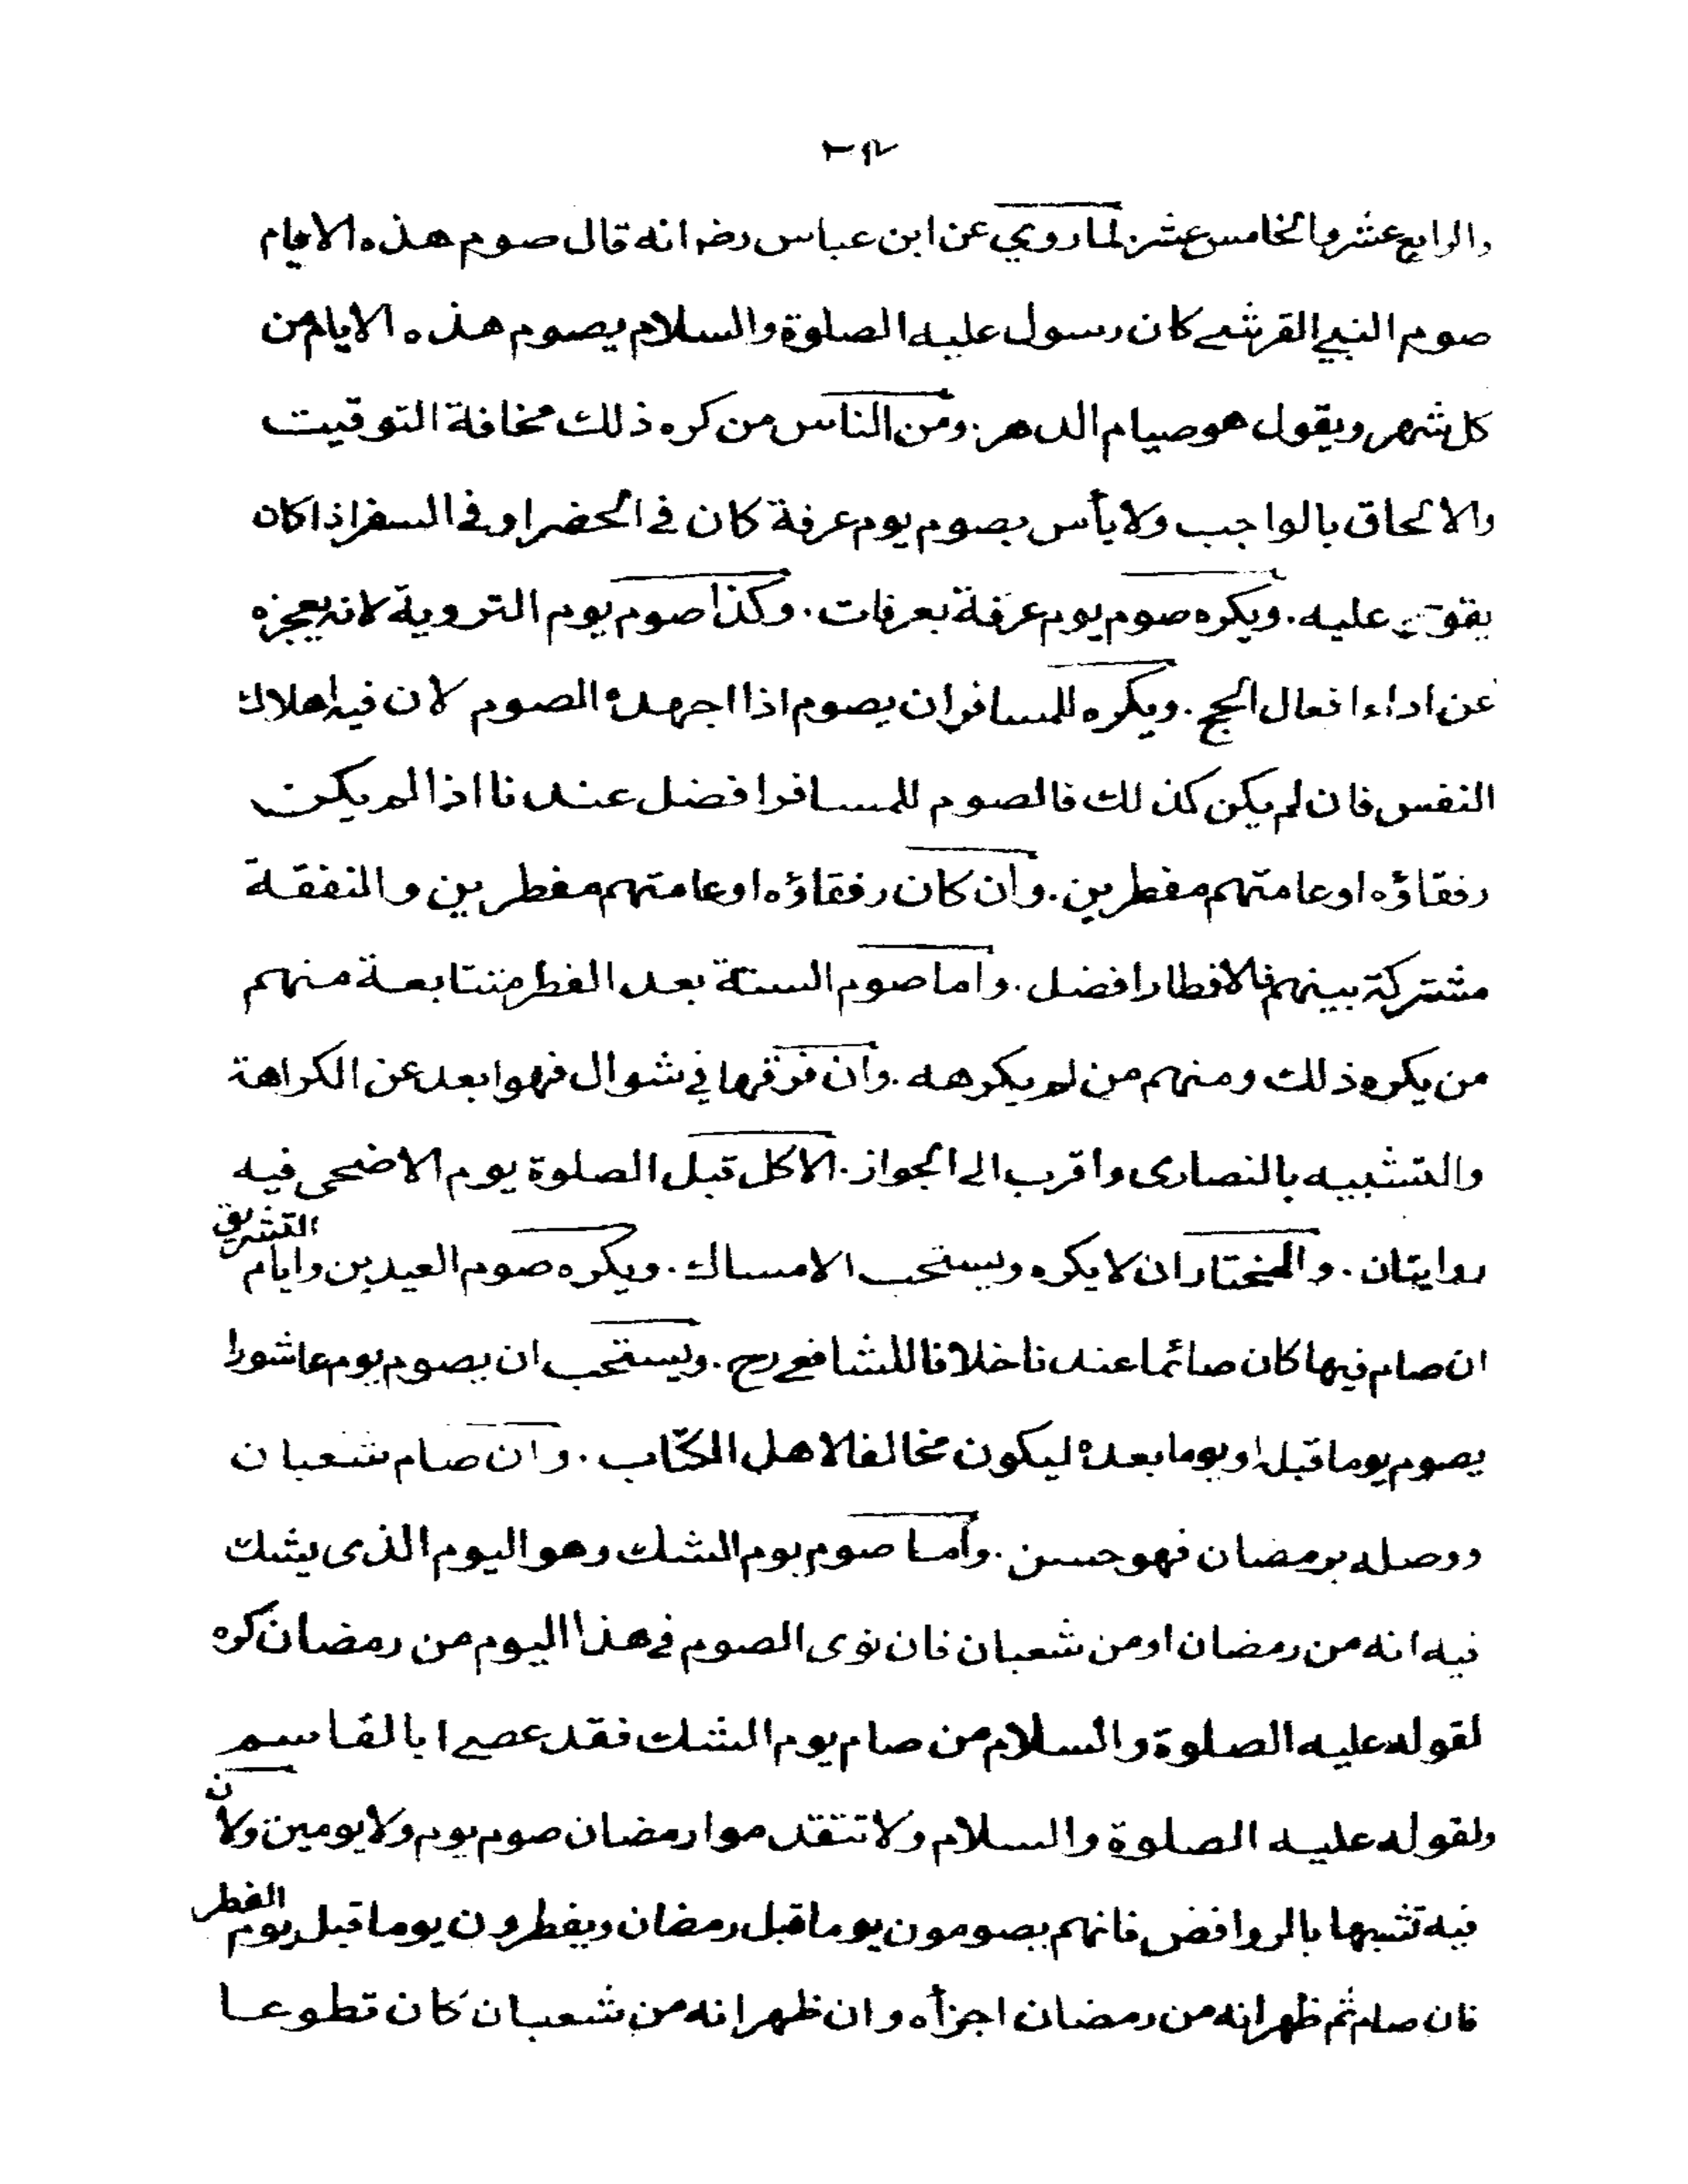 والرابع عشر والخامس عشر لما روي عن ابن عباس رضہ انه قال صوم هذه الايام
صوم النبي القرشے كان رسول عليه الصلوة والسلام يصوم هذه الايام من
كل شهر ويقول هو صيام الدهر. ومن الناس من كره ذلك مخافة التوقيت
والالحاق بالواجب ولا بأس بصوم يوم عرفة كان في الحضر او في السفر اذا كان
يقوى عليه. ويكره صوم يوم عرفة بعرفات. وكذا صوم يوم التروية لانه يعجزه
عن اداء افعال الحج. ويكره للمسافر ان يصوم اذا اجهده الصوم لان فيه اهلاك
النفس فان لم يكن كذلك فالصوم للمسافر افضل عندنا اذا لم يكن
رفقاؤه او عامتهم مفطرين. وان كان رفقاؤه او عامتهم مفطرين والنفقة
مشتركة بينهم فالافطار افضل. واما صوم الستة بعد الفطر متتابعة منهم
من يكره ذلك ومنهم من لم يكرهه. وان فرقها في شوال فهو ابعد عن الكراهة
والتشبيه بالنصارى واقرب الى الجواز. الاكل قبل الصلوة يوم الاضحى فيه
روايتان. والمختار ان لا يكره ويستحب الامساك. ويكره صوم العيدين وايام التشريق
ان صام فيها كان صائما عندنا خلافا للشافعے رح. ويستحب ان يصوم يوم عاشورا
يصوم يوما قبله او يوما بعده ليكون مخالفا لاهل الكتاب. وان صام شعبان
ووصله برمضان فهو حسن. واما صوم يوم الشك وهو اليوم الذى يشك
فيه انه من رمضان او من شعبان فان نوى الصوم في هذا اليوم من رمضان كره
لقوله عليه الصلوة والسلام من صام يوم الشك فقد عصے ابا القاسم
ولقوله عليه الصلوة والسلام ولا تتقدموا رمضان صوم يوم ولا يومين ولان
فيه تشبها بالروافض فانهم يصومون يوما قبل رمضان ويفطرون يوما قبل يوم الفطر
فان صام ثم ظهر انه من رمضان اجزأه وان ظهر انه من شعبان كان تطوعا